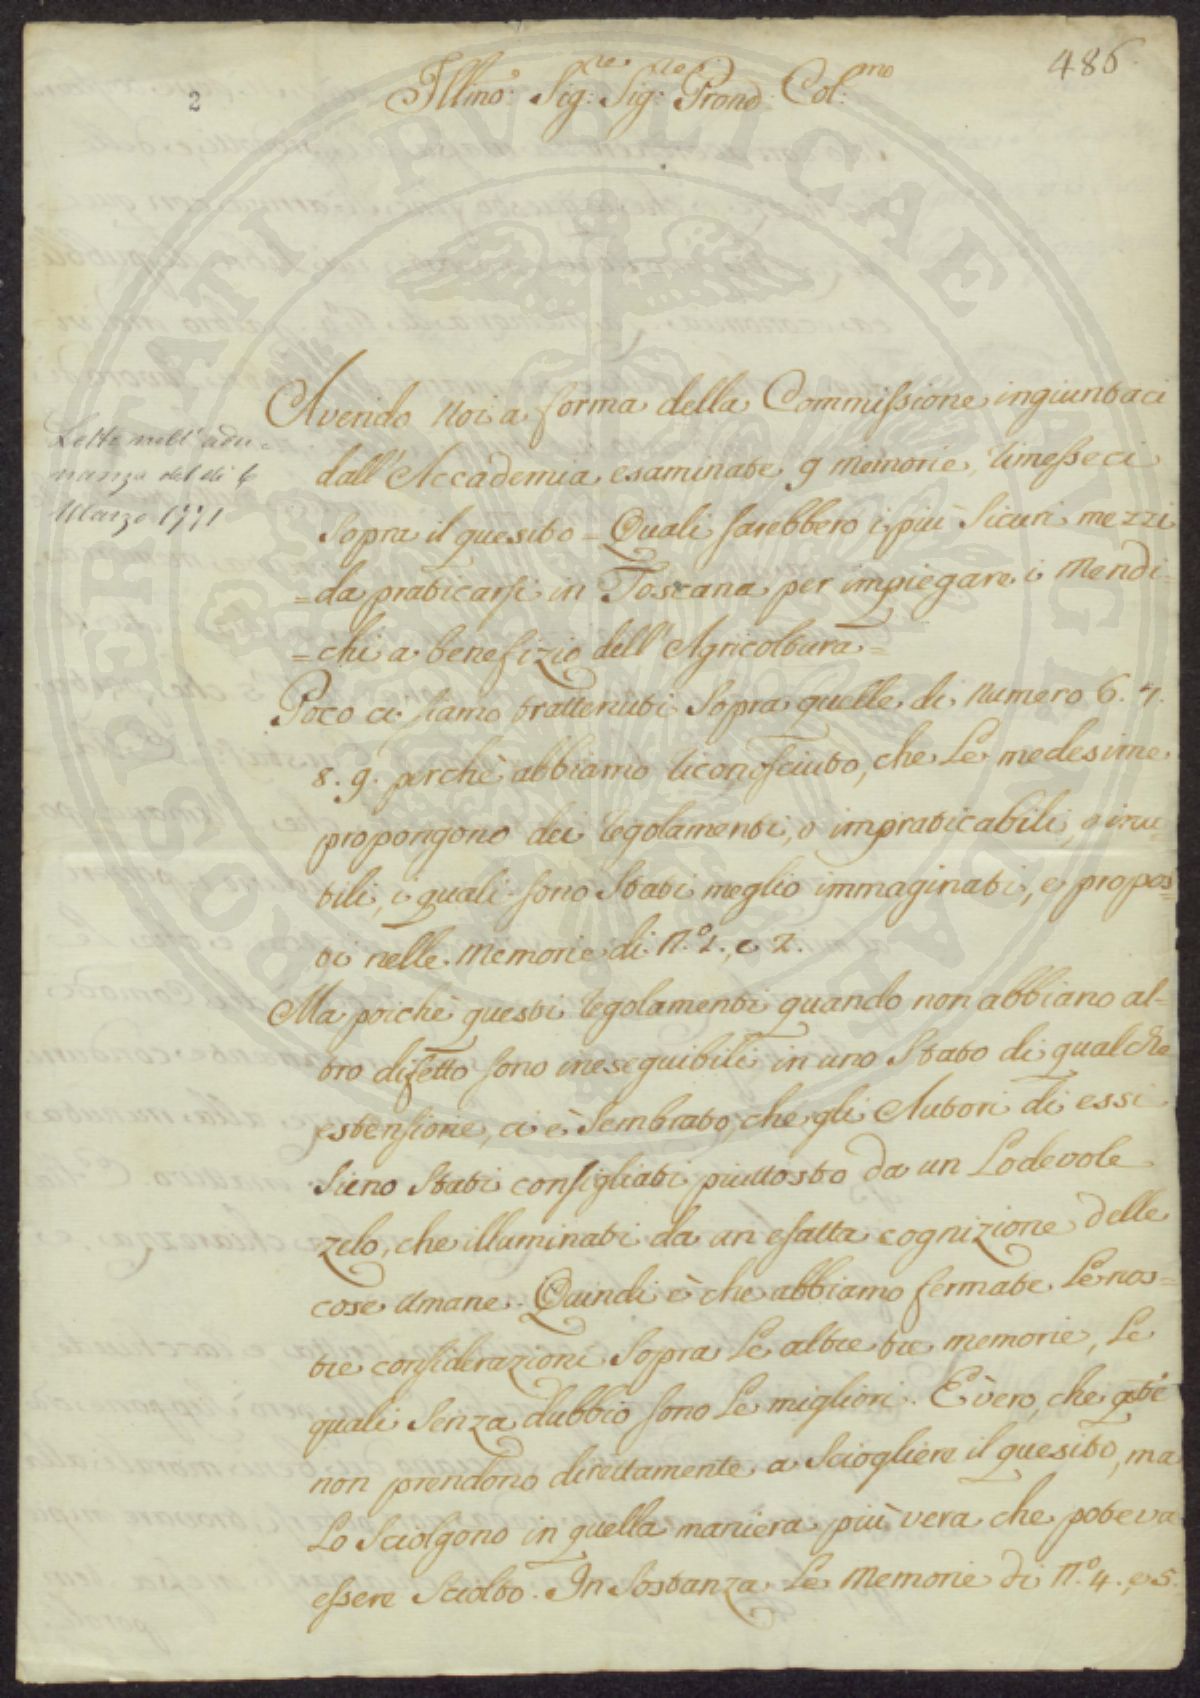 486
2
Illmo: Sig:re Sig:re Prond: Col:mo
Lette nell' adu-
nanza del dì 6
Marzo 1771
Avendo Noi a forma della Commissione ingiuntaci
dall' Accademia esaminate 9 memorie, rimesseci
Sopra il quesito = Quali sarebbero i più Sicuri mezzi
= da praticarsi in Toscana per impiegare i Mendi=
= chi a benefizio dell' Agricoltura =
Poco ci siamo trattenuti Sopra quelle di Numero 6. 7.
8. 9. perchè abbiamo riconosciuto, che Le medesime
propongono dei regolamenti, o impraticabili, o inu=
tili, i quali sono Stati meglio immaginati, e propos=
ti nelle Memorie di N.º 1., e 2.
Ma poichè questi regolamenti quando non abbiano al-
tro difetto sono ineseguibili in uno Stato di qualche
estensione, ci è Sembrato, che gli Autori di essi
Sieno Stati consigliati piuttosto da un Lodevole
zelo, che illuminati da un esatta cognizione delle
cose umane. Quindi è che abbiamo fermate Le nos=
tre considerazioni Sopra Le altre tre memorie, Le
quali Senza dubbio sono Le migliori. E vero, che qste
non prendono direttamente a Sciogliere il quesito, ma
Lo Sciolgono in quella maniera più vera che poteva
essere Sciolto. In Sostanza Le Memorie di N.º 4., e 5.
PROSPERITATI PVBLICAE AVGENDAE